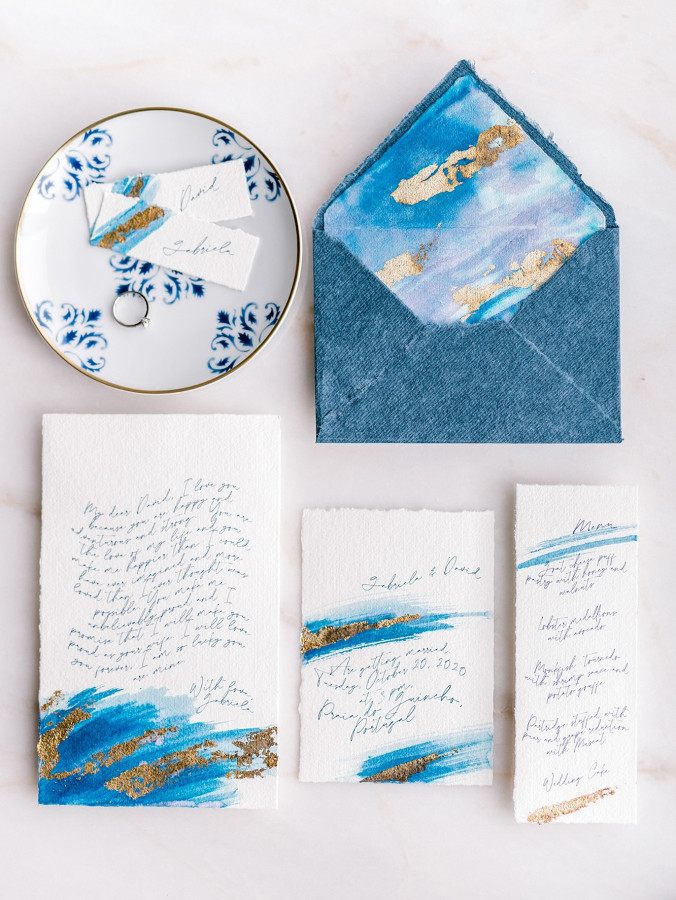 David
Gabriela
My dear David, I love you
so because you are happy and
adventurous and strong. You are
the love of my life and you
make me happier than I could
have ever imagined and more
loved than I ever thought was
possible. You make me
unbelievably proud and, I
promise that I will make you
proud as your wife. I will love
you forever. I am so lucky you
are mine.
With love,
Gabriela
Gabriela & David
Are getting married
Tuesday, October 20, 2020
at 3 pm
Praia do Guincho,
Portugal
Menu
Goat cheese puff
pastry with honey and
walnuts
Lobster medallions
with avocado
Monkfish Tornado
with shrimp sauce and
potato
Partridge stuffed with
pear and grape reduction
with Muscat
Wedding Cake